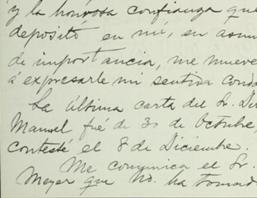 y la honrosa confianza que
depositó en mí, en asun
de importancia, me mueve
á expresarle mi sentida cond
La última carta del Sr. D
Manuel fué de 30 de Octubre,
contesté el 8 de Diciembre.
Me comunica el Sr.
Meyer que No. ha tomad